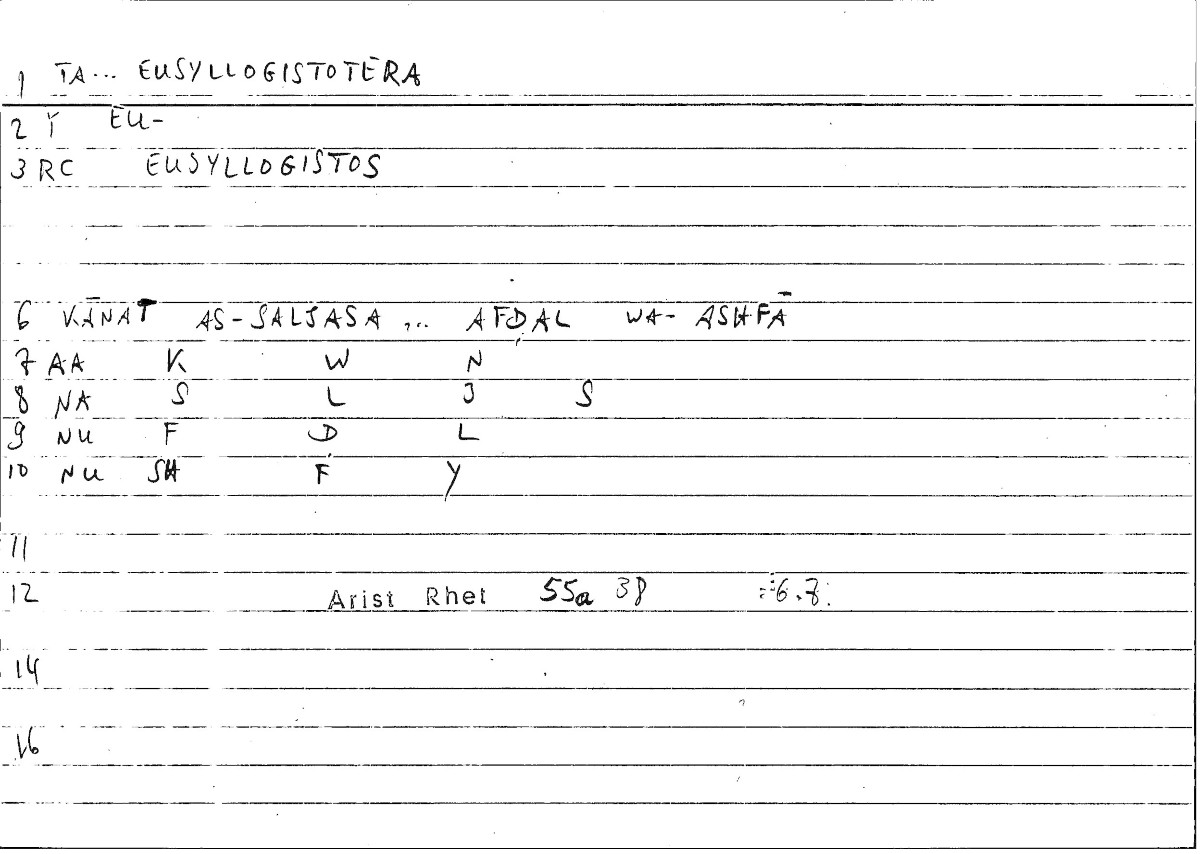 1 TA... EUSYLLOGISTOTERA
2 Y EU-
3 RC EUSYLLOGISTOS
6 KĀNAT AS-SALJASA ... AFḌAL WA- ASHFĀ
7 AA K W N
8 NA S L J S
9 NU F Ḍ L
10 NU SH F Y
11
12 Arist Rhet 55a 38 6.7.
14
16